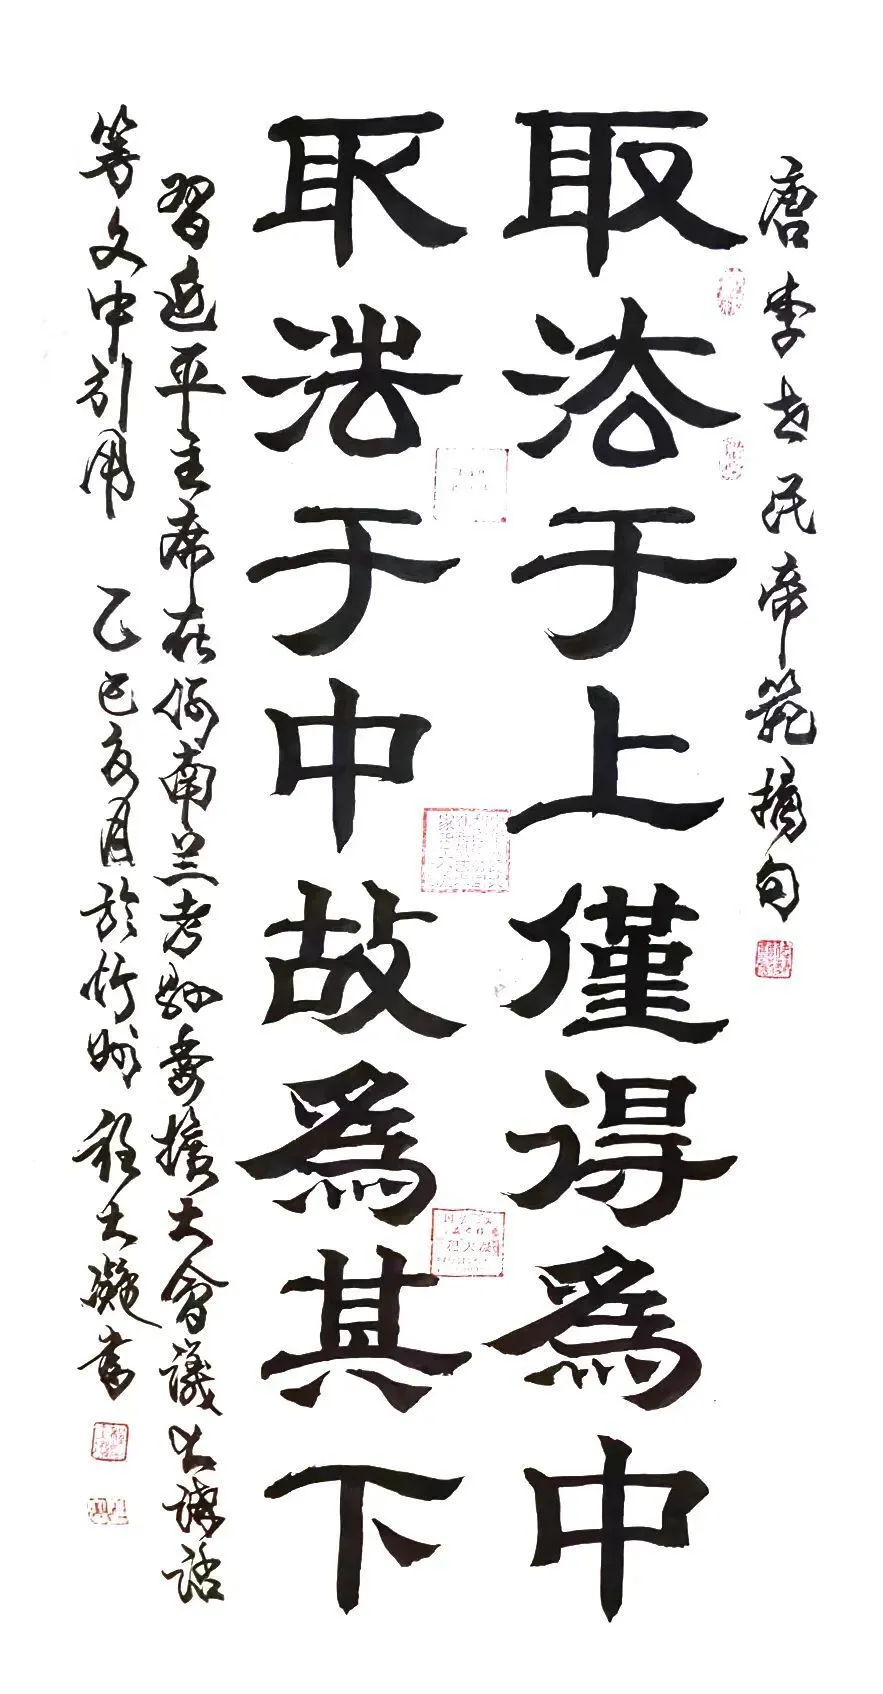 唐李世民帝範摘句
取法于上僅得為中
取法于中故為其下
習近平主席在河南兰考縣委擴大會議上講話
等文中引用 乙巳夏月於忻州 程大凝書